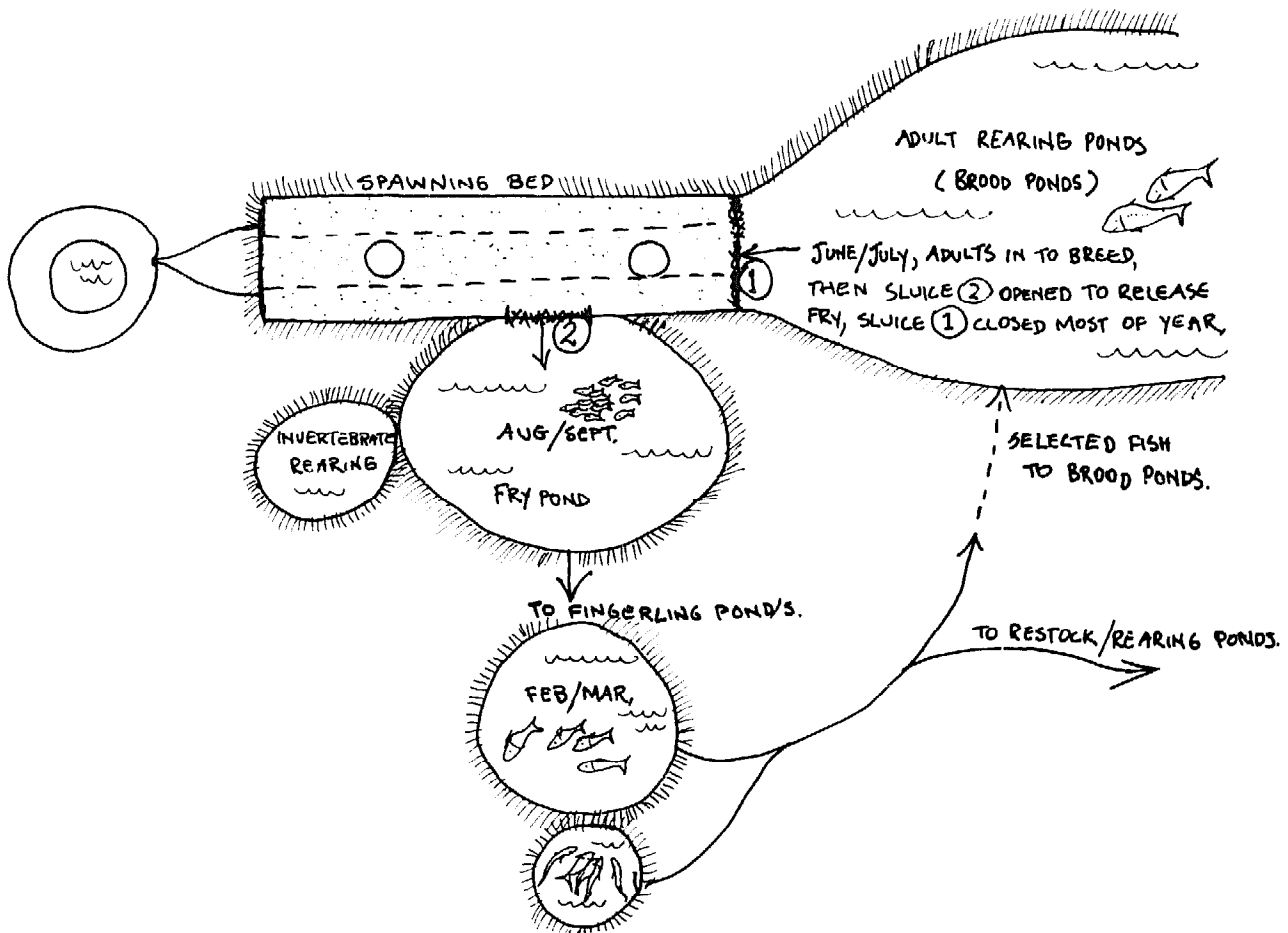 SPAWNING BED
ADULT REARING PONDS
(BROOD PONDS)
JUNE/JULY, ADULTS IN TO BREED,
THEN SLUICE ② OPENED TO RELEASE
FRY, SLUICE ① CLOSED MOST OF YEAR,
①
②
INVERTEBRATE
REARING
AUG/SEPT.
FRY POND
SELECTED FISH
TO BROOD PONDS.
TO FINGERLING POND/S.
TO RESTOCK/REARING PONDS.
FEB/MAR,